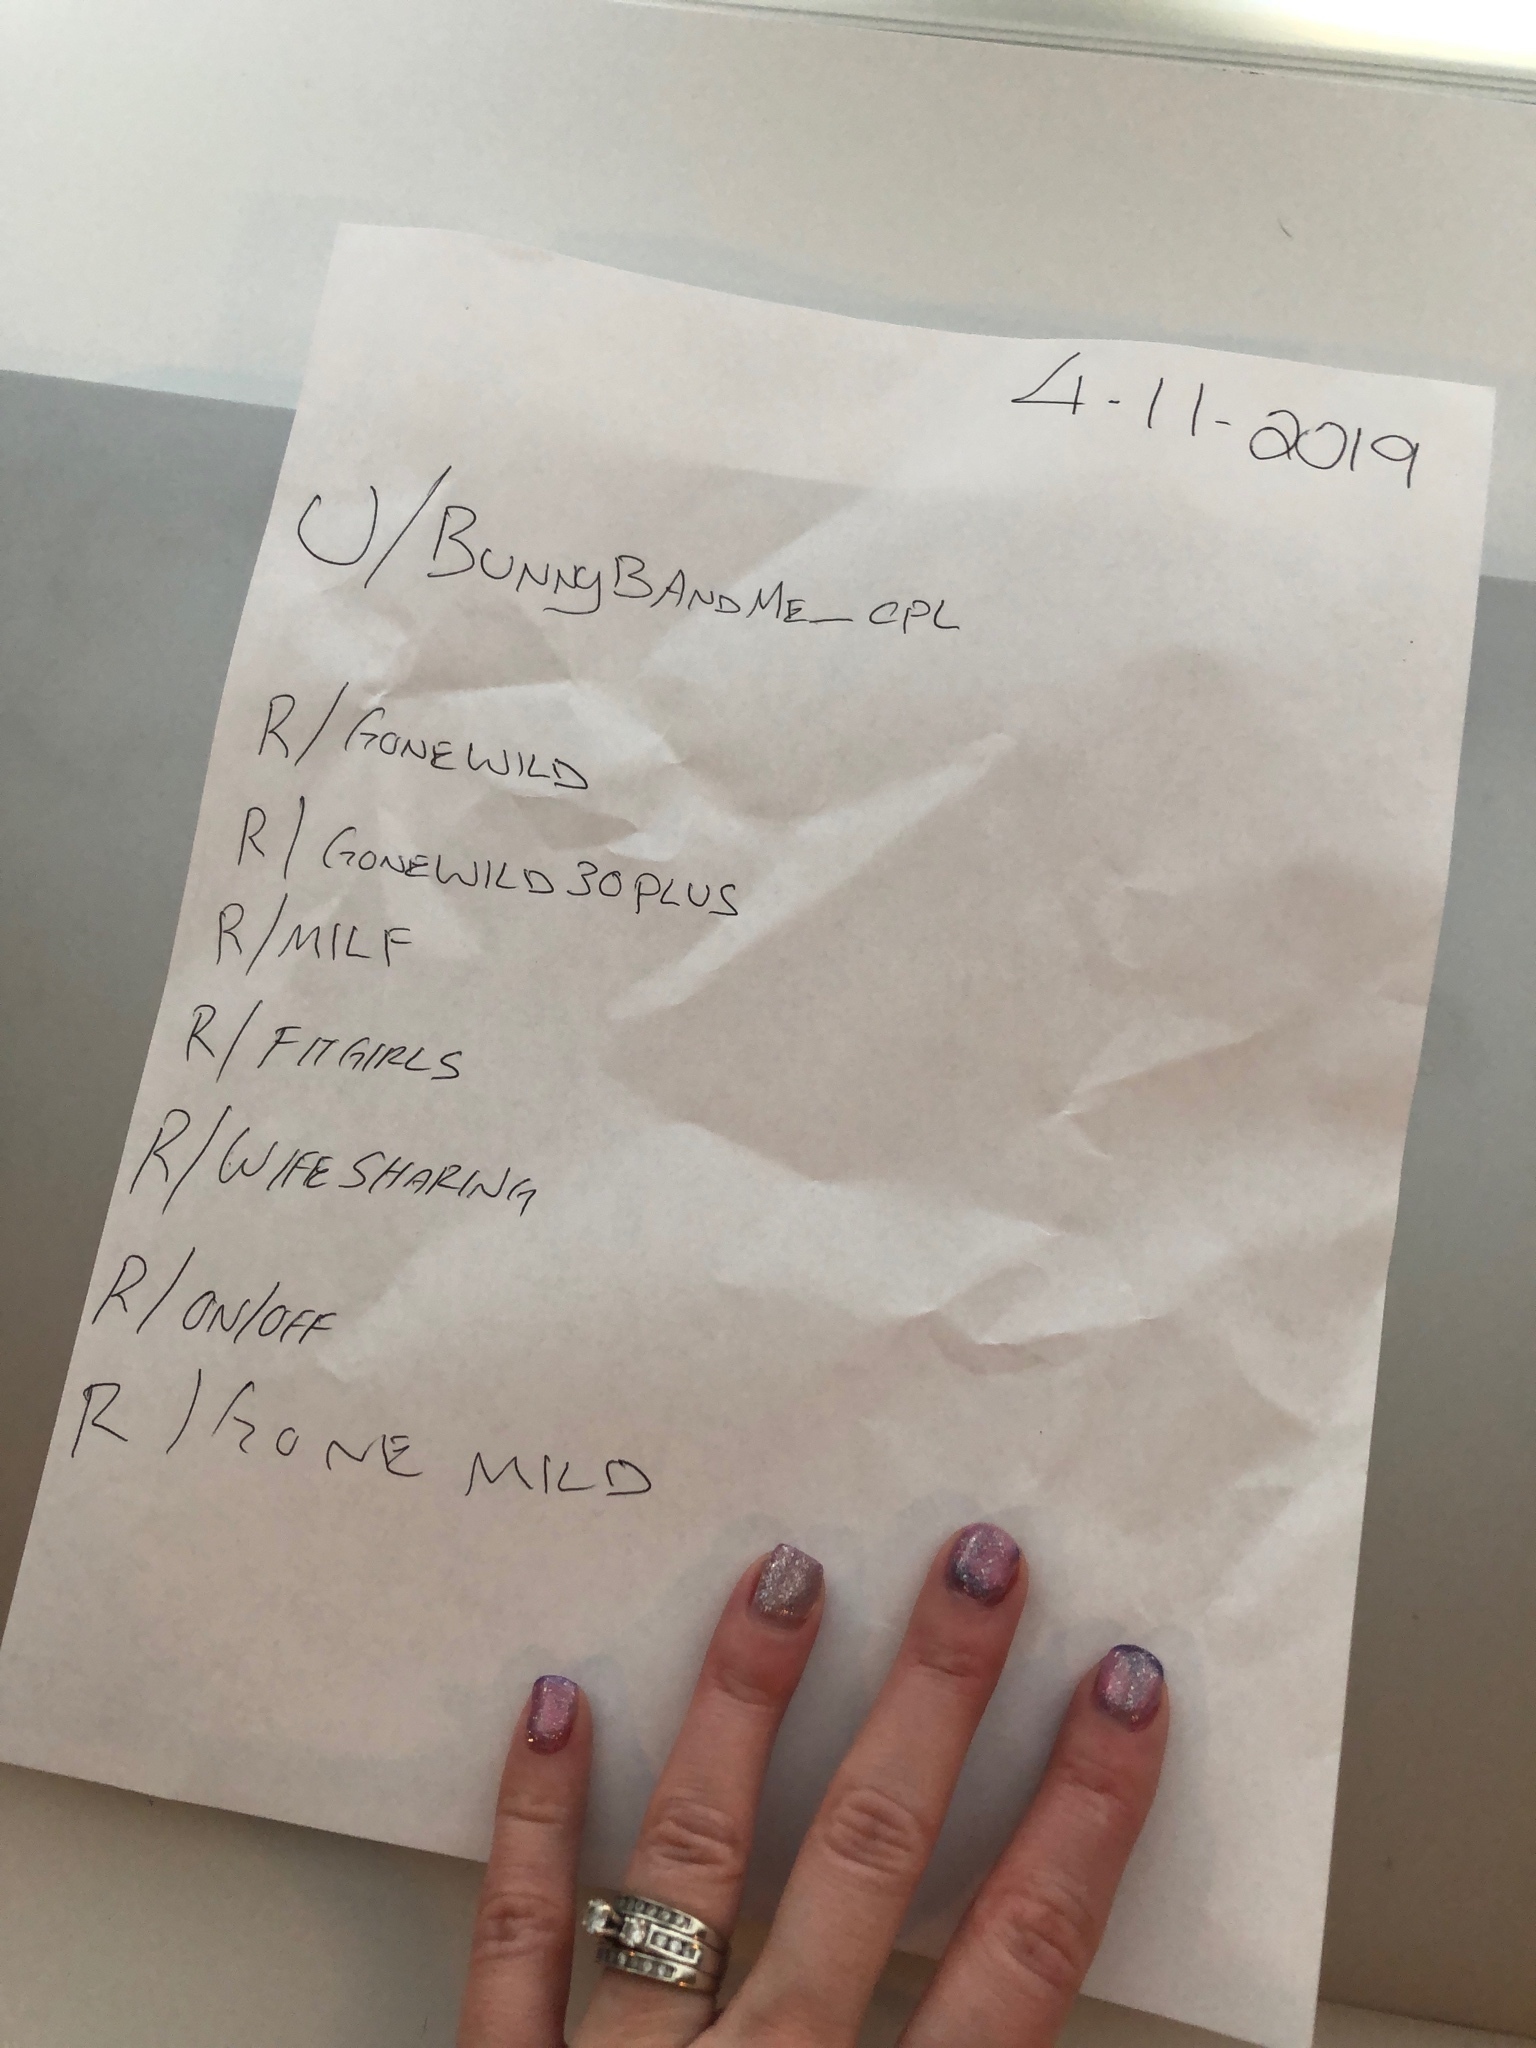 4-11-2019
U/BunnyBAndMe_CPL
R/GONEWILD
R/GONEWILD30PLUS
R/MILF
R/FITGIRLS
R/WIFESHARING
R/ON/OFF
R/GONE MILD